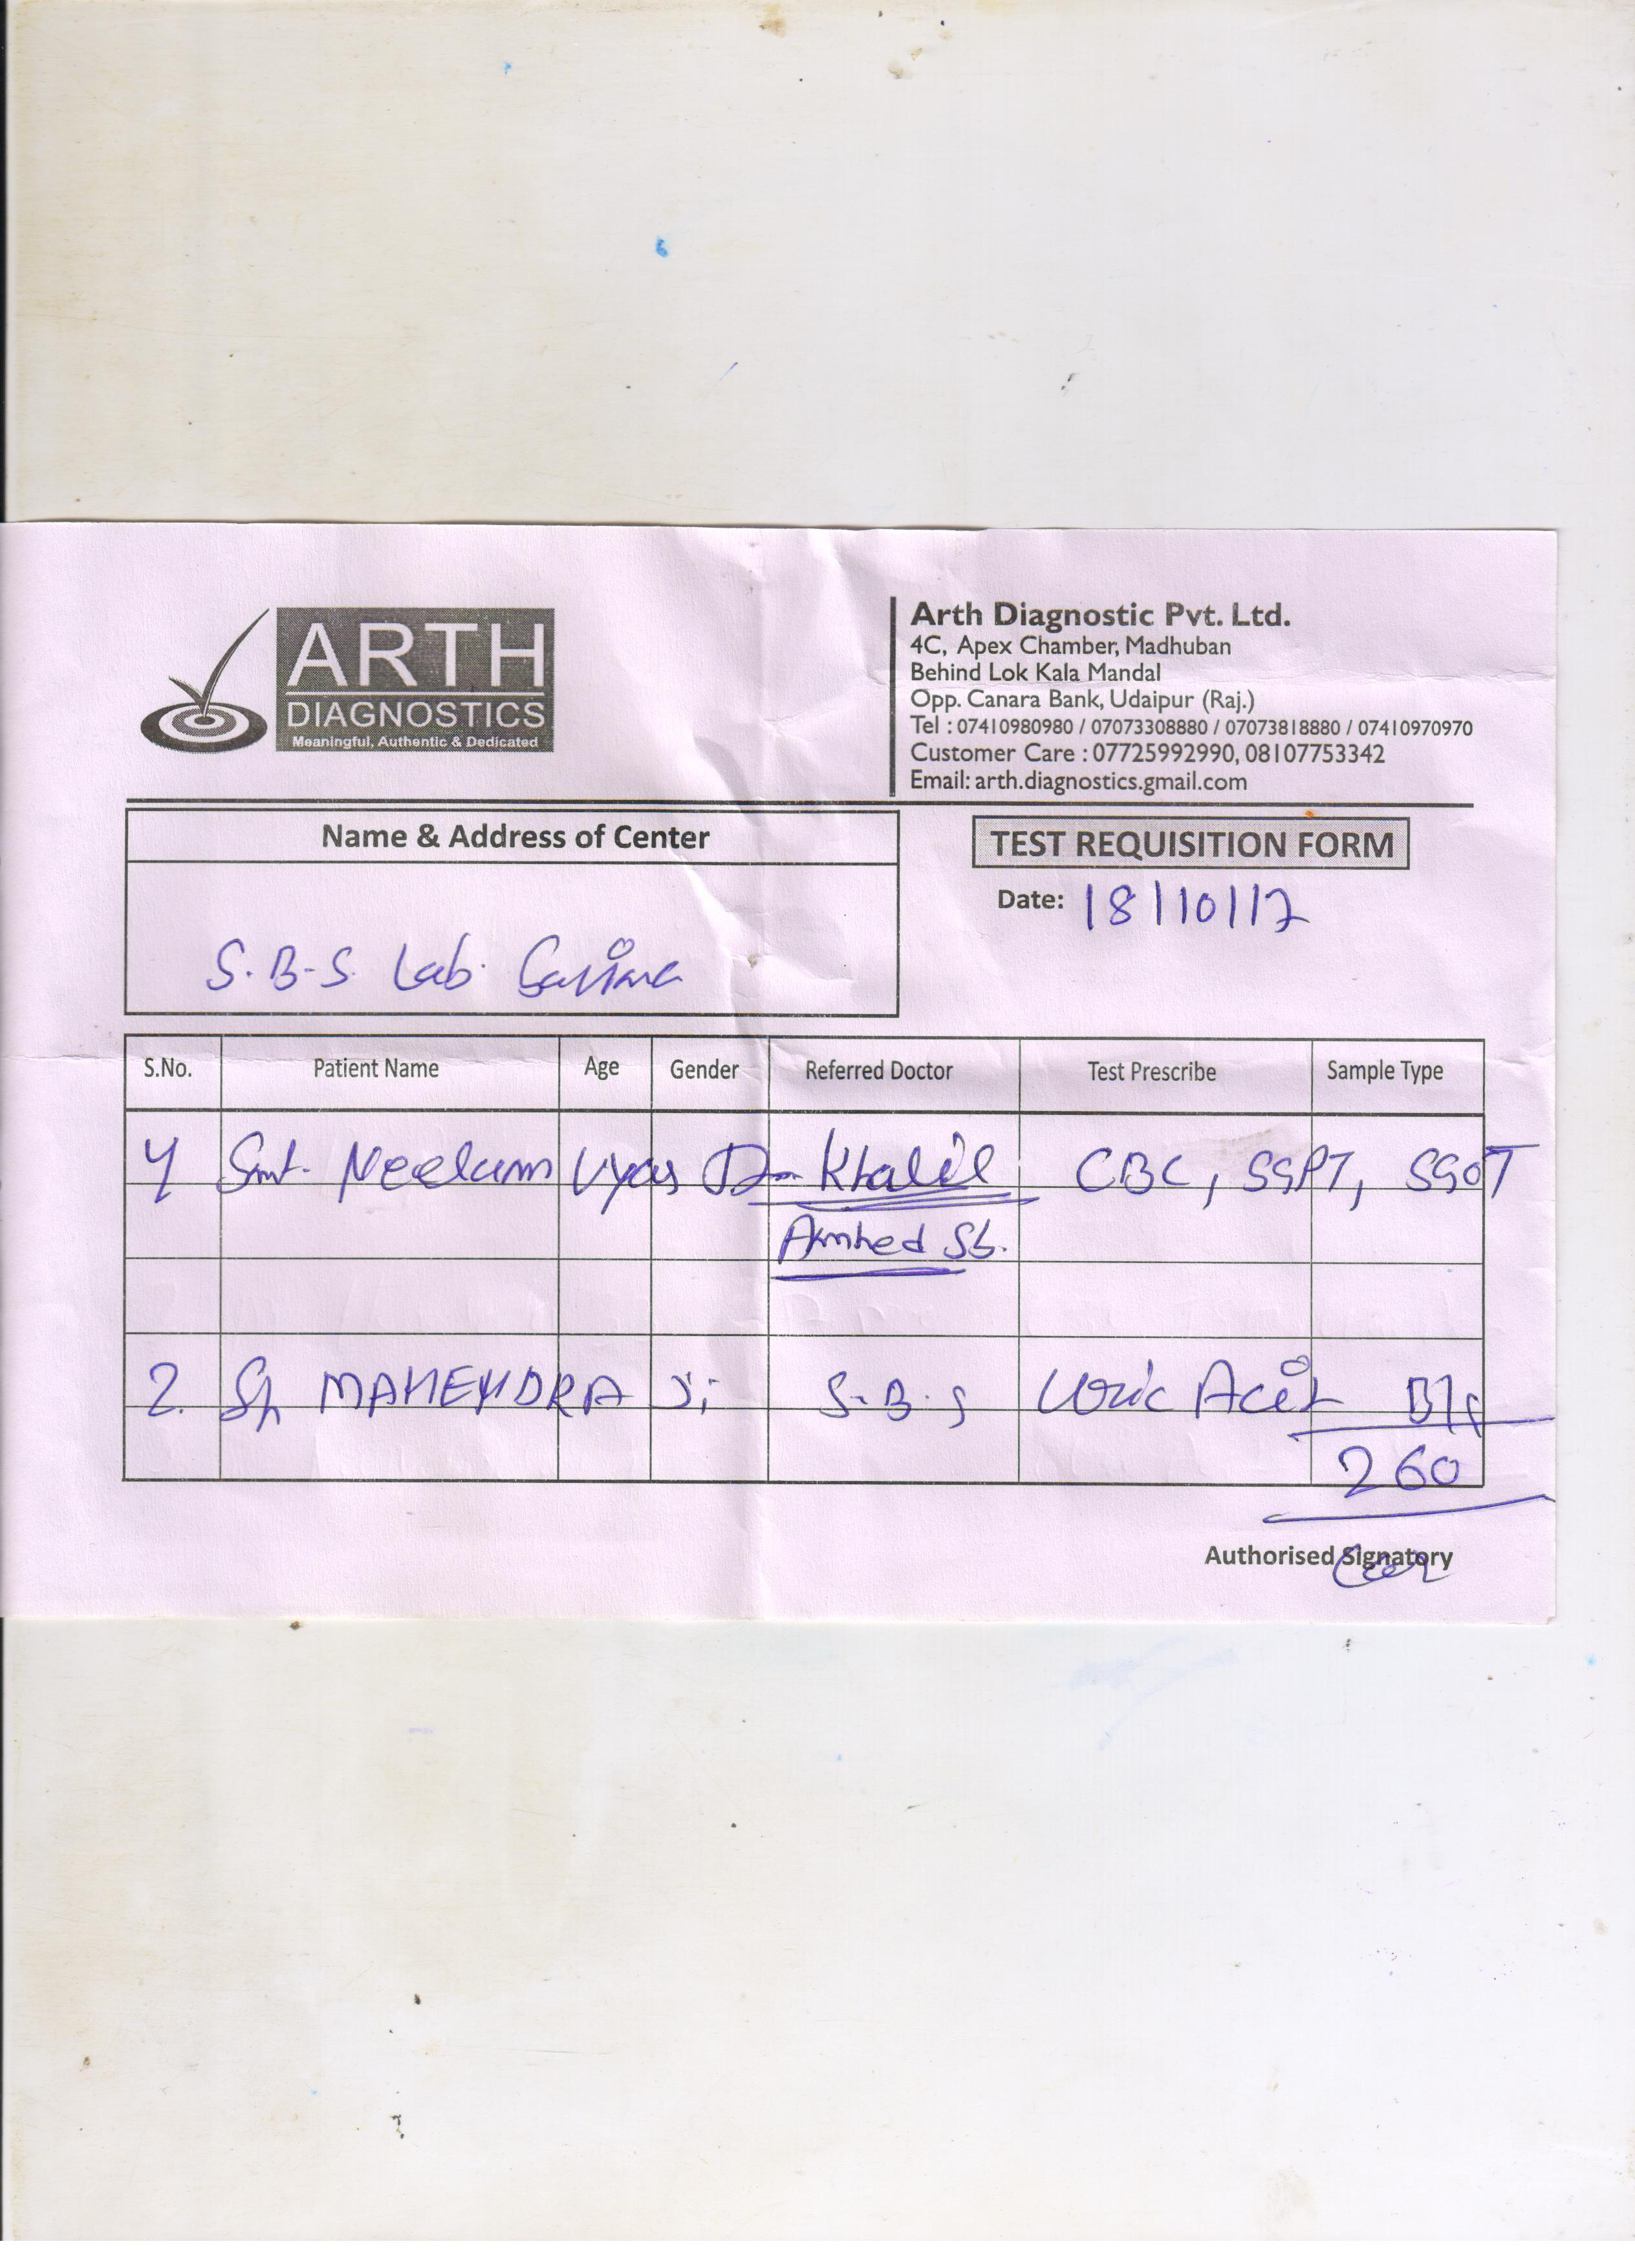 ARTH
DIAGNOSTICS
Meaningful, Authentic & Dedicated
Arth Diagnostic Pvt. Ltd.
4C, Apex Chamber, Madhuban
Behind Lok Kala Mandal
Opp. Canara Bank, Udaipur (Raj.)
Tel : 07410980980 / 07073308880 / 07073818880 / 07410970970
Customer Care : 07725992990, 08107753342
Email: arth.diagnostics.gmail.com
Name & Address of Center
TEST REQUISITION FORM
Date: 18/10/17
S.B.S. Lab.
S.No. Patient Name Age Gender Referred Doctor Test Prescribe Sample Type
1 Smt. Neelam Vyas Dr Khalil CBC, SGPT, SGOT
Ahmhed Sb.
2. Sh MAHENDRA Ji S.B.S Uric Acid
260
Authorised Signatory